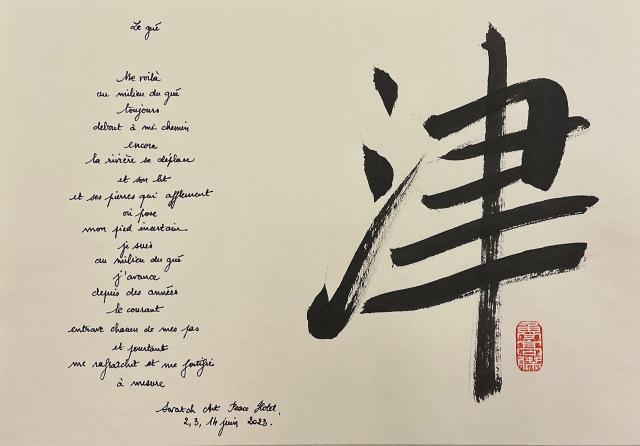 Le gué
Me voilà
au milieu du gué
toujours
debout à mi-chemin
encore
la rivière se déplace
et son lit
et ses pierres qui affleurent
où pose
mon pied incertain
je suis
au milieu du gué
j'avance
depuis des années
le courant
entrave chacun de mes pas
et pourtant
me rafraîchit et me fortifie
à mesure
Swatch Art Peace Hotel,
2, 3, 14 juin 2023.
津